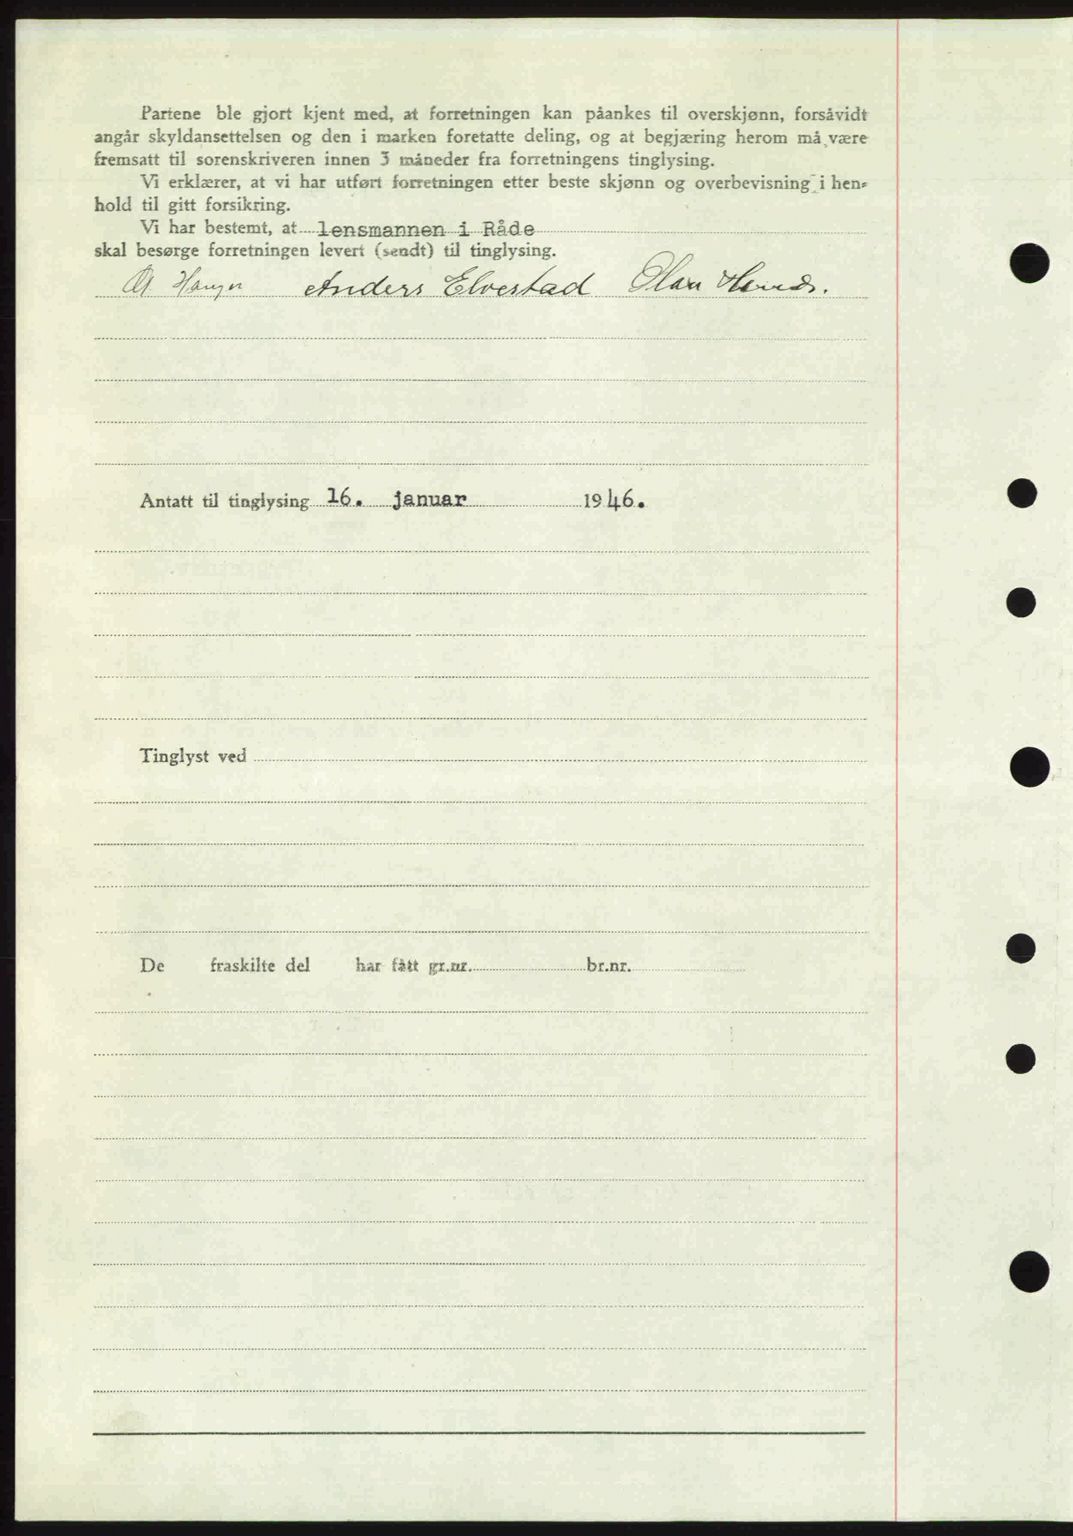 Partene ble gjort kjent med, at forretningen kan påankes til overskjønn, forsåvidt
angår skyldansettelsen og den i marken foretatte deling, og at begjæring herom må være
fremsatt til sorenskriveren innen 3 måneder fra forretningens tinglysing.
Vi erklærer, at vi har utført forretningen etter beste skjønn og overbevisning i hen-
hold til gitt forsikring.
Vi har bestemt, at lensmannen i Råde
skal besørge forretningen levert (sendt) til tinglysing.
Anders Elvestad Olav
Antatt til tinglysing 16. januar 1946.
Tinglyst ved
De fraskilte del har fått gr.nr. br.nr.